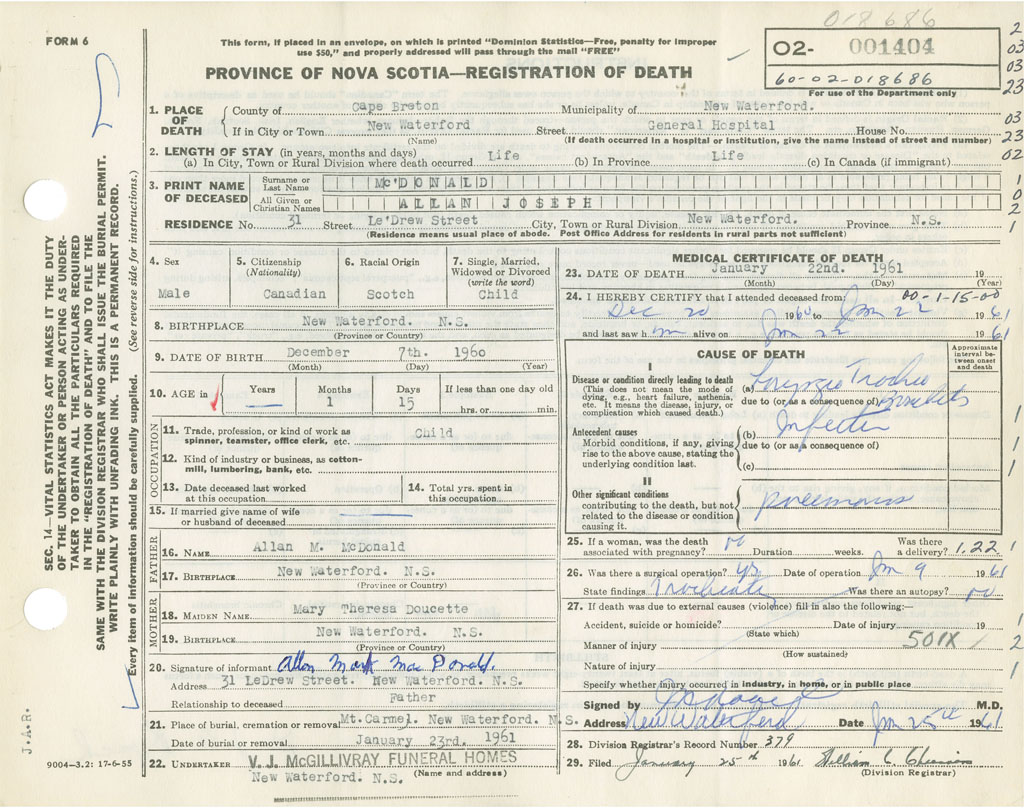 018686
FORM 6
This form, if placed in an envelope, on which is printed "Dominion Statistics—Free, penalty for improper
use $50," and properly addressed will pass through the mail "FREE"
PROVINCE OF NOVA SCOTIA—REGISTRATION OF DEATH
02- 001404
60-02-018686
For use of the Department only
2
03
03
23
03
23
02
1
0
2
1
1. PLACE OF DEATH
County of Cape Breton Municipality of New Waterford.
If in City or Town New Waterford Street General Hospital House No.
(Name) (If death occurred in a hospital or institution, give the name instead of street and number)
2. LENGTH OF STAY (in years, months and days)
(a) In City, Town or Rural Division where death occurred Life (b) In Province Life (c) In Canada (if immigrant)
3. PRINT NAME OF DECEASED
Surname or Last Name Mc'DONALD
All Given or Christian Names ALLAN JOSEPH
RESIDENCE No. 31 Street Le'Drew Street City, Town or Rural Division New Waterford. Province N.S.
(Residence means usual place of abode. Post Office Address for residents in rural parts not sufficient)
4. Sex
Male
5. Citizenship (Nationality)
Canadian
6. Racial Origin
Scotch
7. Single, Married, Widowed or Divorced (write the word)
Child
8. BIRTHPLACE New Waterford. N.S.
(Province or Country)
9. DATE OF BIRTH December 7th. 1960
(Month) (Day) (Year)
10. AGE in Years Months 1 Days 15 If less than one day old hrs. or min.
OCCUPATION
11. Trade, profession, or kind of work as spinner, teamster, office clerk, etc. Child
12. Kind of industry or business, as cotton-mill, lumbering, bank, etc.
13. Date deceased last worked at this occupation
14. Total yrs. spent in this occupation
15. If married give name of wife or husband of deceased
FATHER
16. NAME Allan M. McDonald
17. BIRTHPLACE New Waterford. N.S.
(Province or Country)
MOTHER
18. MAIDEN NAME Mary Theresa Doucette
19. BIRTHPLACE New Waterford. N.S.
(Province or Country)
20. Signature of informant Allan Mark MacDonald.
Address 31 LeDrew Street. New Waterford. N.S.
Relationship to deceased Father
21. Place of burial, cremation or removal Mt. Carmel. New Waterford. N.S.
Date of burial or removal January 23rd. 1961
22. UNDERTAKER V. J. McGILLIVRAY FUNERAL HOMES
New Waterford. N.S. (Name and address)
MEDICAL CERTIFICATE OF DEATH
23. DATE OF DEATH January 22nd. 1961 19
(Month) (Day) (Year)
24. I HEREBY CERTIFY that I attended deceased from: 00-1-15-00
Dec 20 1960 to Jan 22 1961
and last saw him alive on Jan 22 1961
CAUSE OF DEATH
Approximate interval between onset and death
I
Disease or condition directly leading to death
(This does not mean the mode of dying, e.g., heart failure, asthenia, etc. It means the disease, injury, or complication which caused death.)
(a)
due to (or as a consequence of) Bronchitis
Antecedent causes
Morbid conditions, if any, giving rise to the above cause, stating the underlying condition last.
(b) Infection
due to (or as a consequence of)
(c)
1
1
1
II
Other significant conditions
contributing to the death, but not related to the disease or condition causing it.
25. If a woman, was the death associated with pregnancy? no Duration weeks. Was there a delivery? 1.22 1
26. Was there a surgical operation? yes Date of operation Jan 9 1961
State findings Was there an autopsy? no
27. If death was due to external causes (violence) fill in also the following:—
Accident, suicide or homicide? Date of injury 19 1
(State which)
Manner of injury 501X 2
(How sustained)
Nature of injury 1
Specify whether injury occurred in industry, in home, or in public place
Signed by M.D.
Address New Waterford Date Jan 25th 1961
28. Division Registrar's Record Number 379
29. Filed January 25th 1961 William C.
(Division Registrar)
SEC. 14—VITAL STATISTICS ACT MAKES IT THE DUTY
OF THE UNDERTAKER OR PERSON ACTING AS UNDER-
TAKER TO OBTAIN ALL THE PARTICULARS REQUIRED
IN THE "REGISTRATION OF DEATH" AND TO FILE THE
SAME WITH THE DIVISION REGISTRAR WHO SHALL ISSUE THE BURIAL PERMIT.
WRITE PLAINLY WITH UNFADING INK. THIS IS A PERMANENT RECORD.
Every item of information should be carefully supplied. (See reverse side for instructions.)
J.A.R.
9004—3.2: 17-6-55